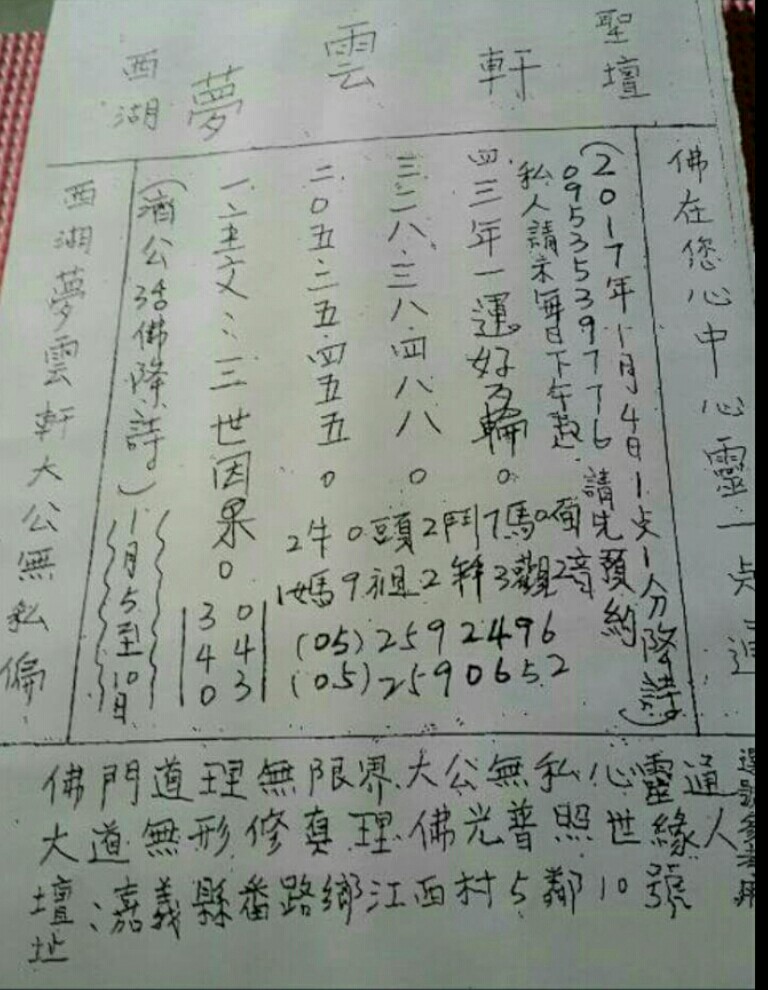 聖壇
西湖夢雲軒
佛在您心中心靈一点
(2017年1月4日1点1分降詩)
0953539776 請先預約
私人請求每日下午起
四三年一運好互輪。
三二八.三八.四八八。
二.0五.二五.四五五。
一.主文:三世因果。
(濟公活佛降詩)
1月5至10日
30
44
03
2牛0頭2鬥7馬0面
1媽9祖2錍3觀2音
(05)2592496
(05)2590652
西湖夢雲軒大公無私偏
佛門道理無限界.大公無私心靈通
大道無形修真理.佛光普照世緣人
壇址:嘉義縣番路鄉江西村5鄰10號